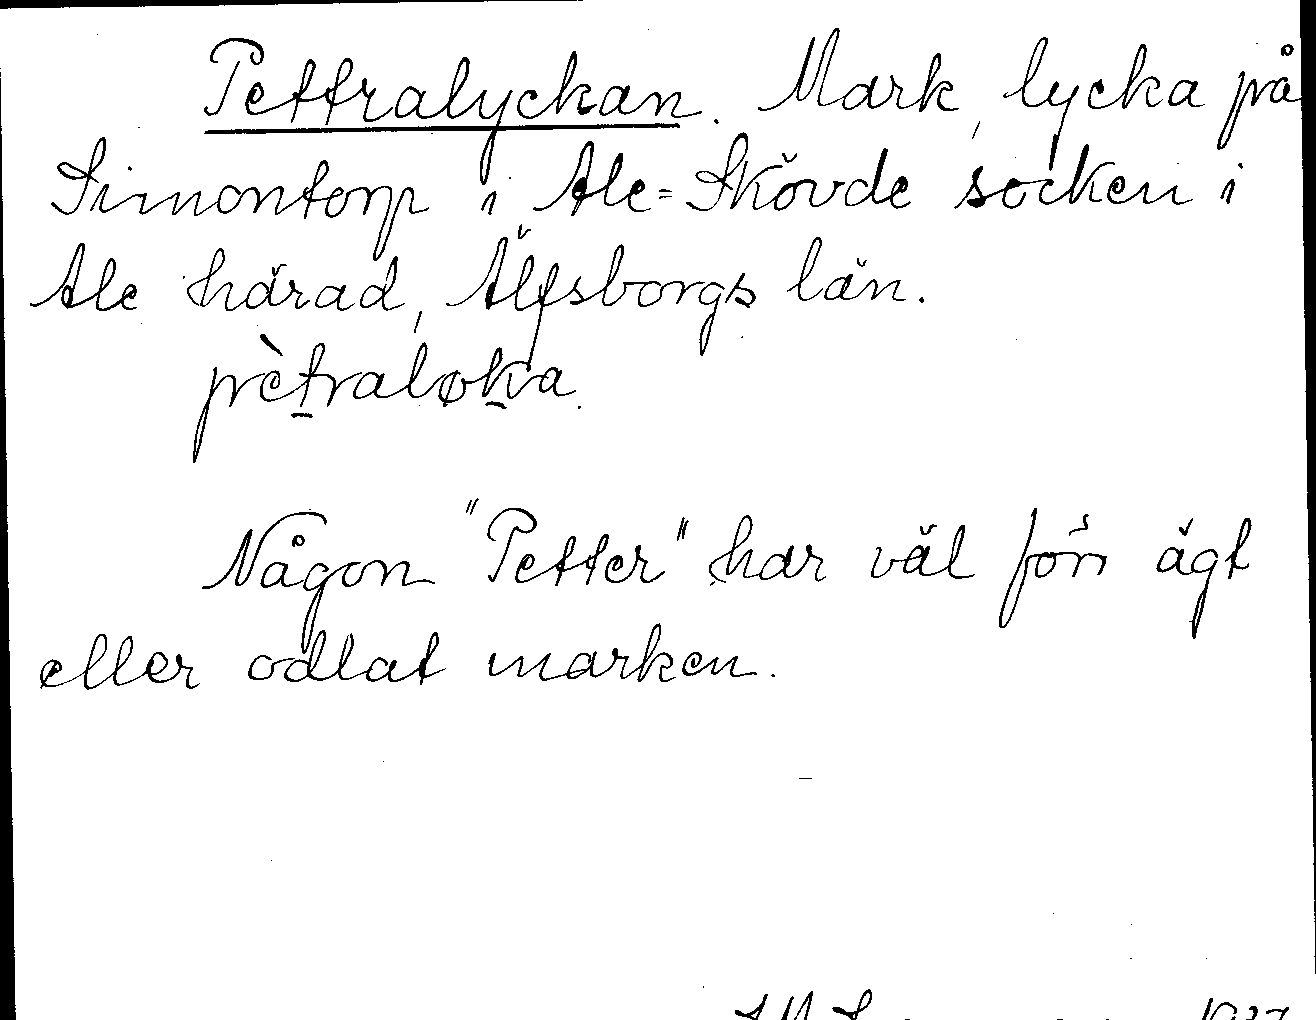 Pettralyckan. Mark, lycka på
Simontorp i Ale=Skövde socken i
Ale härad, Älfsborgs län.
pètraløka.
Någon "Petter" har väl förr ägt
eller odlat marken.